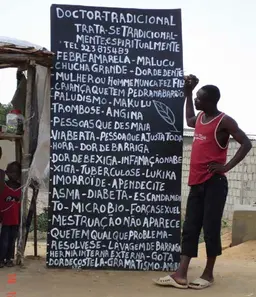 DOCTOR-TRADICIONAL
TRATA-SE TRADICIONAL-
MENTE ESPIRITUALMENTE
TEL 923875489
FEBRE AMARELA-MALUCU
CHUCHA GRANDE-DOR DE DENTE
MULHER OU HOMEM NUNCA FEZ FILHO
CRIANÇA QUE TEM PEDRA NA BARRIG
PALUDISMO-MAKULU
TROMBOSE-ANGINA
PESSOAS QUE DESMAIA
VIRBERTA-PESSOA QUE AJUSTA TODA
HORA-DOR DE BARRIGA
DOR DE BEXIGA-INFAMAÇÃO NA BE
XIGA-TUBERCULOSE-LUKIKA
IMORROI DE-APENDECITE
ASMA-DIABETA-ESCANDAMEN
TO-MICROBIO-FORÇA SEXUAL
MESTRUAÇÃO NÃO APARECE
QUE TEM QUAL PROBLEMA-
RESOLVESE-LAVAGEM DE BARRIGA
HERNIA INTERNA EXTERNA-GOTA
DOR DE COSTELA-GRAMATISMO